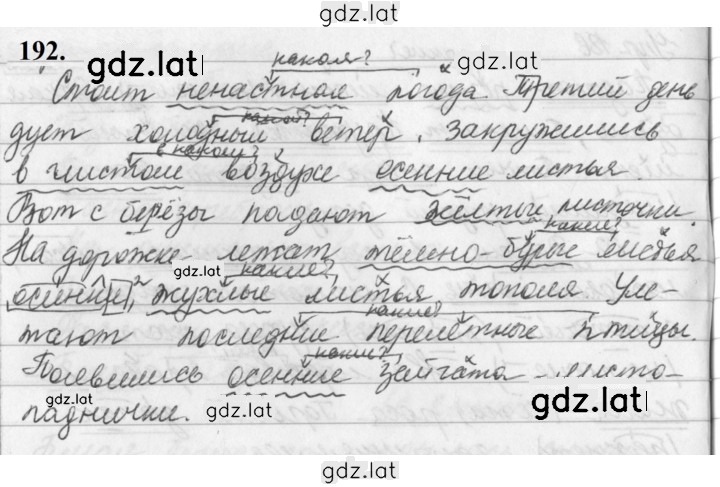 gdz.lat
192.
gdz.lat
какая?
gdz.lat
Стоит ненастная погода. Третий день
какой?
дует холодный ветер. Закружились
в каком?
в чистом воздухе осенние листья
Вот с берёзы падают жёлтые листочки.
какие?
На дорожке лежат тёмно-бурые листья
gdz.lat
какие?
осинки, жухлые листья тополя. Уле-
какие?
тают последние перелётные птицы.
какие?
Появились осенние зайчата листо-
паднички.
gdz.lat
gdz.lat
gdz.lat